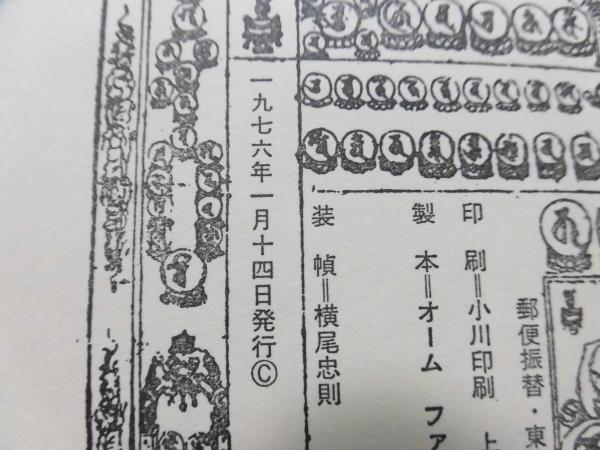 郵便振替・東
印刷＝小川印刷 上
製本＝オーム ファ
装幀＝横尾忠則
一九七六年一月十四日発行©